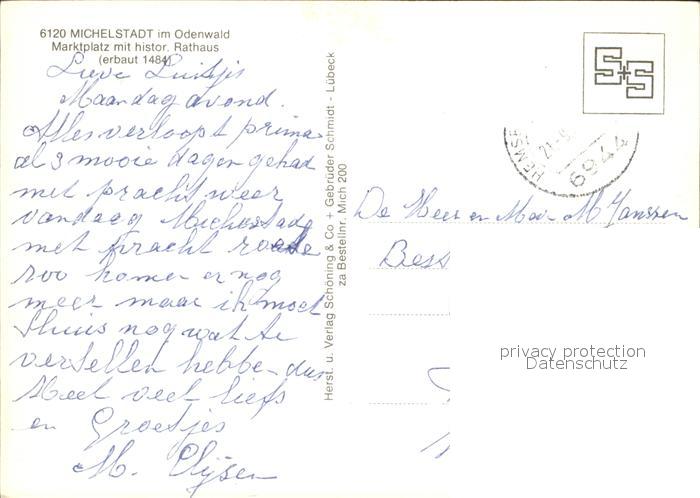 6120 MICHELSTADT im Odenwald
Marktplatz mit histor. Rathaus
(erbaut 1484)
Lieve Luitjes
Maandag avond.
Alles verloopt prima
al 3 mooie dagen gehad
met prachtweer
vandaag Michelstadt
met pracht
zoo komen er nog
meer maar ik moet
thuis nog wat te
vertellen hebben dus
Heel veel liefs
en Groetjes
M.
Herst. u. Verlag Schöning & Co + Gebrüder Schmidt - Lübeck
za Bestellnr. Mich 200
S+S
6944
De Heer en Mev. M Janssen
Bess
privacy protection
Datenschutz